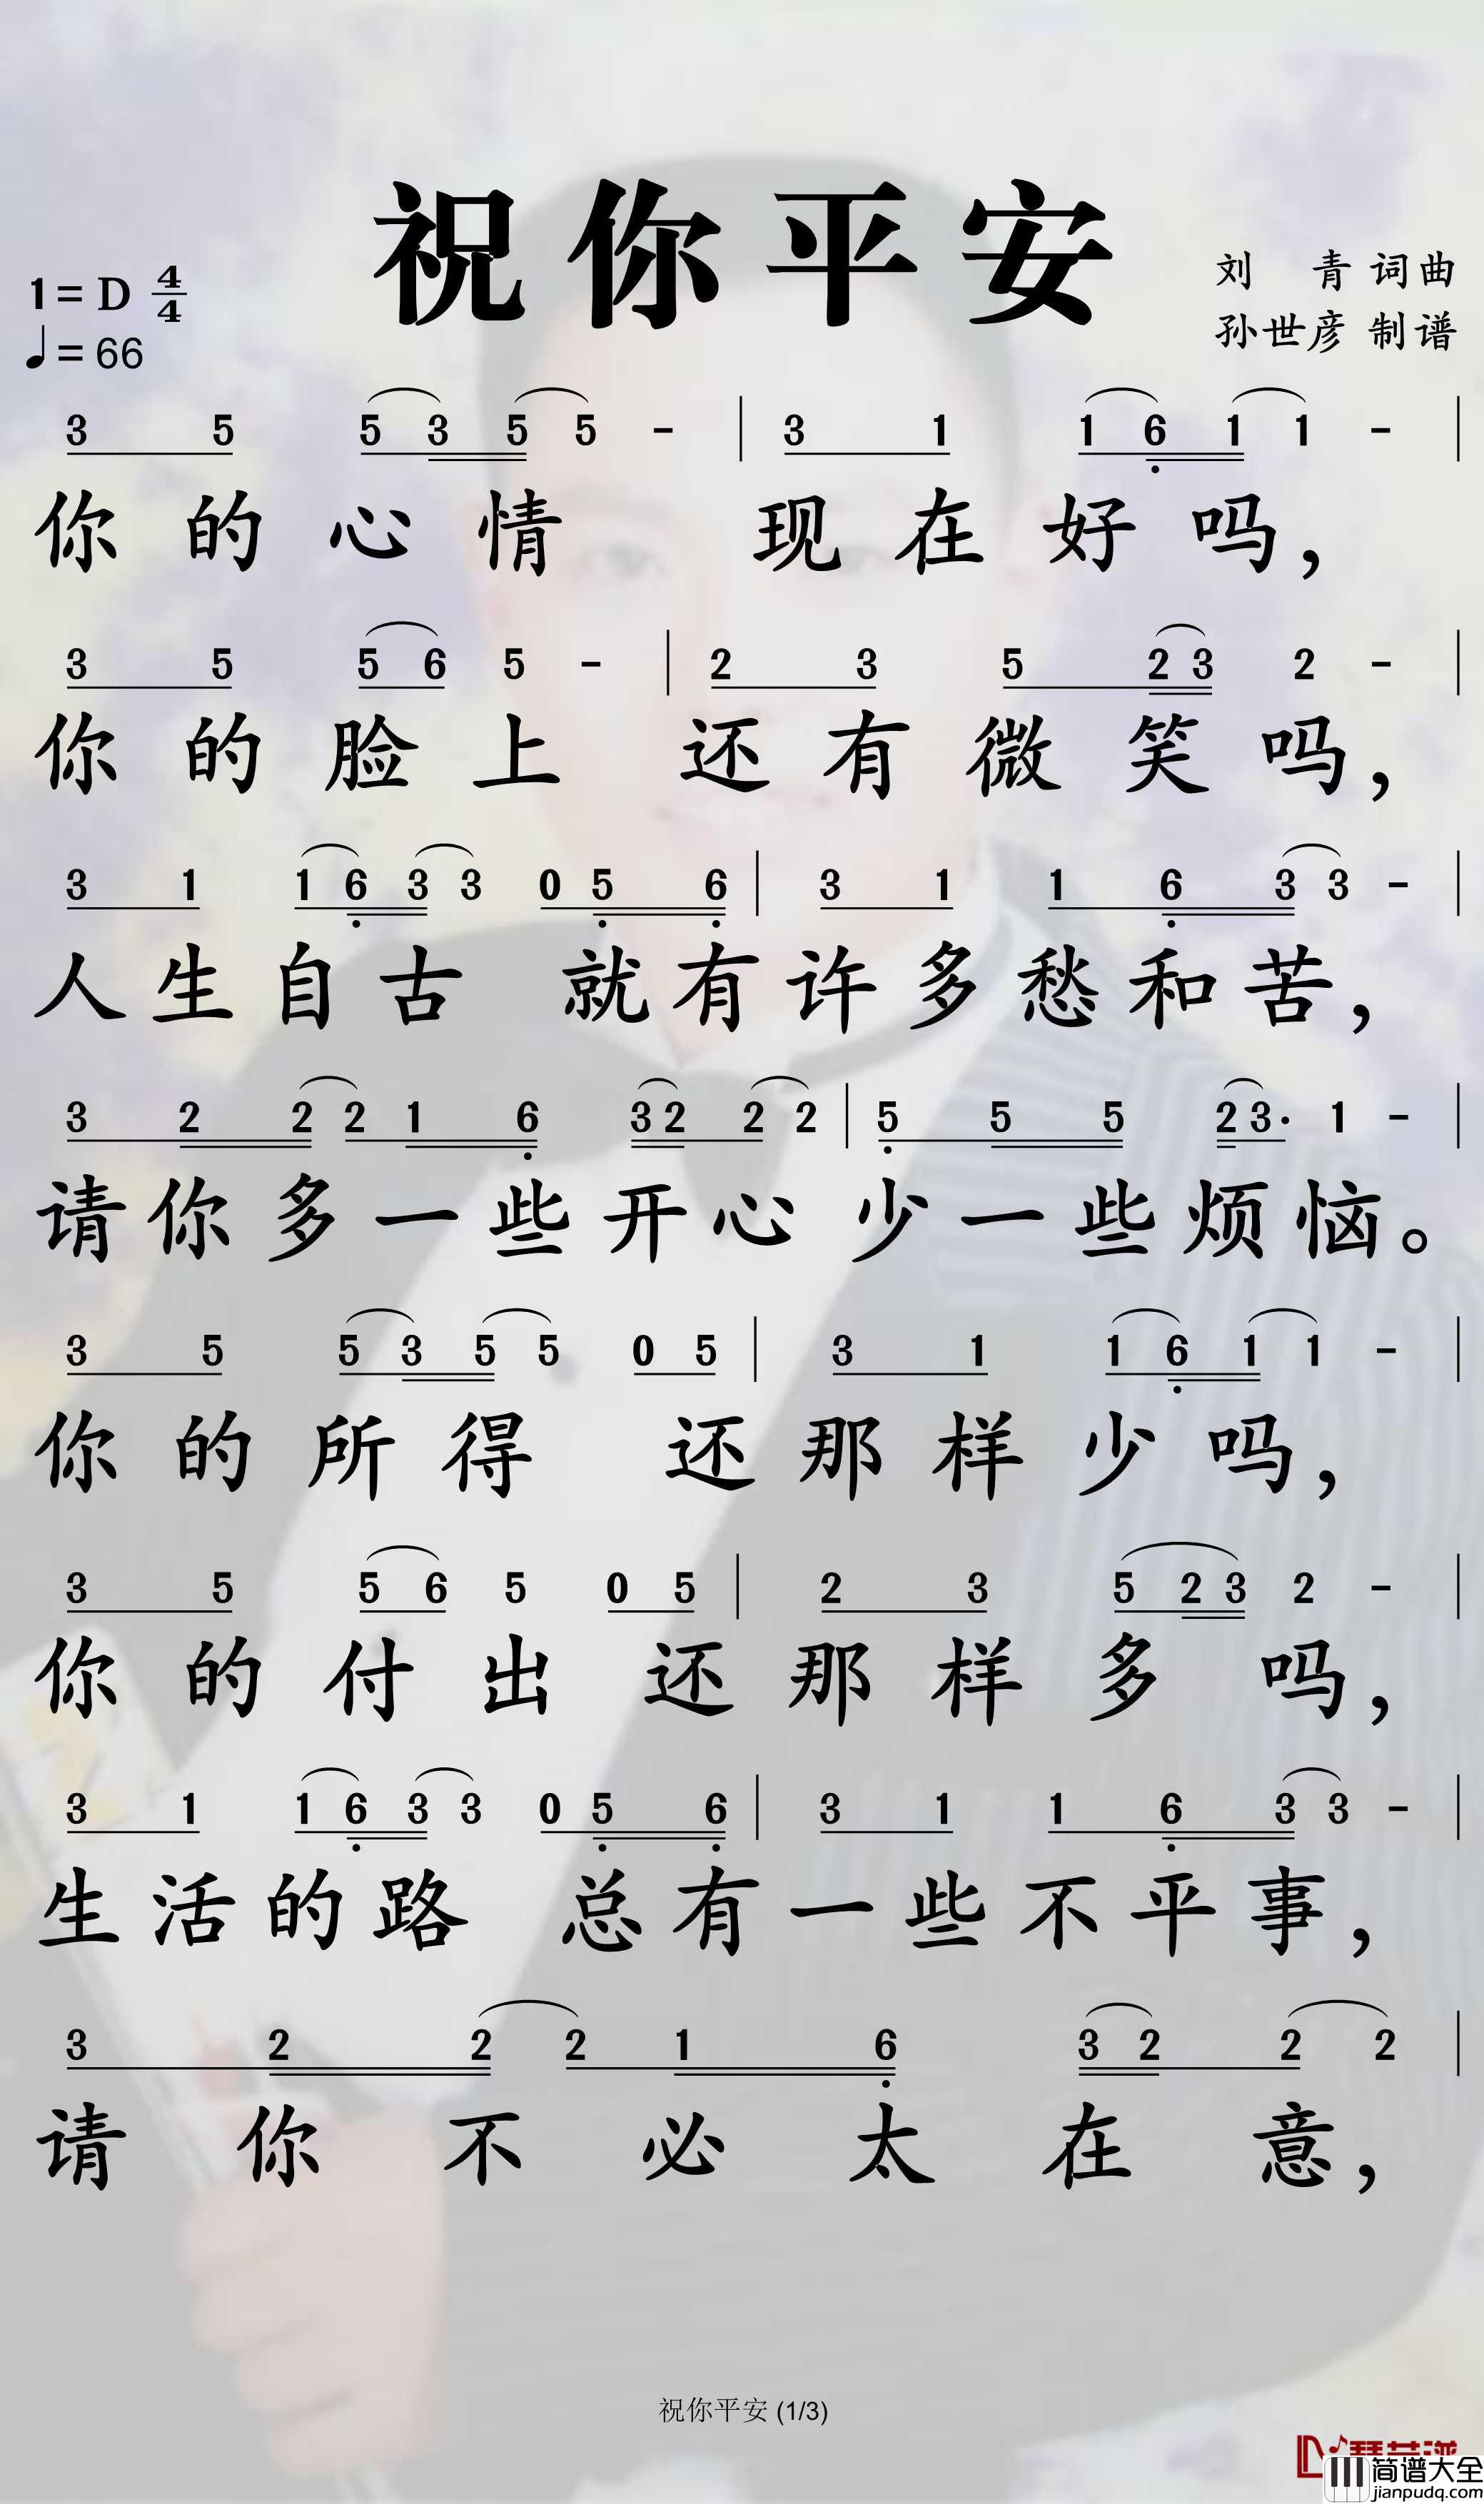 祝你平安
1=D 4/4
♩=66
刘 青 词曲
孙世彦 制谱
3 5 5 3 5 5 - | 3 1 1 6 1 1 - |
你的心情 现在好吗，
3 5 5 6 5 - | 2 3 5 2 3 2 - |
你的脸上 还有微笑吗，
3 1 1 6 3 3 0 5 6 | 3 1 1 6 3 3 - |
人生自古 就有许多愁和苦，
3 2 2 2 1 6 3 2 2 2 | 5 5 5 2 3· 1 - |
请你多一些开心 少一些烦恼。
3 5 5 3 5 5 0 5 | 3 1 1 6 1 1 - |
你的所得 还那样少吗，
3 5 5 6 5 0 5 | 2 3 5 2 3 2 - |
你的付出 还那样多吗，
3 1 1 6 3 3 0 5 6 | 3 1 1 6 3 3 - |
生活的路 总有一些不平事，
3 2 2 2 1 6 3 2 2 2 |
请你不必太在意，
祝你平安 (1/3)
简谱大全
jianpudq.com